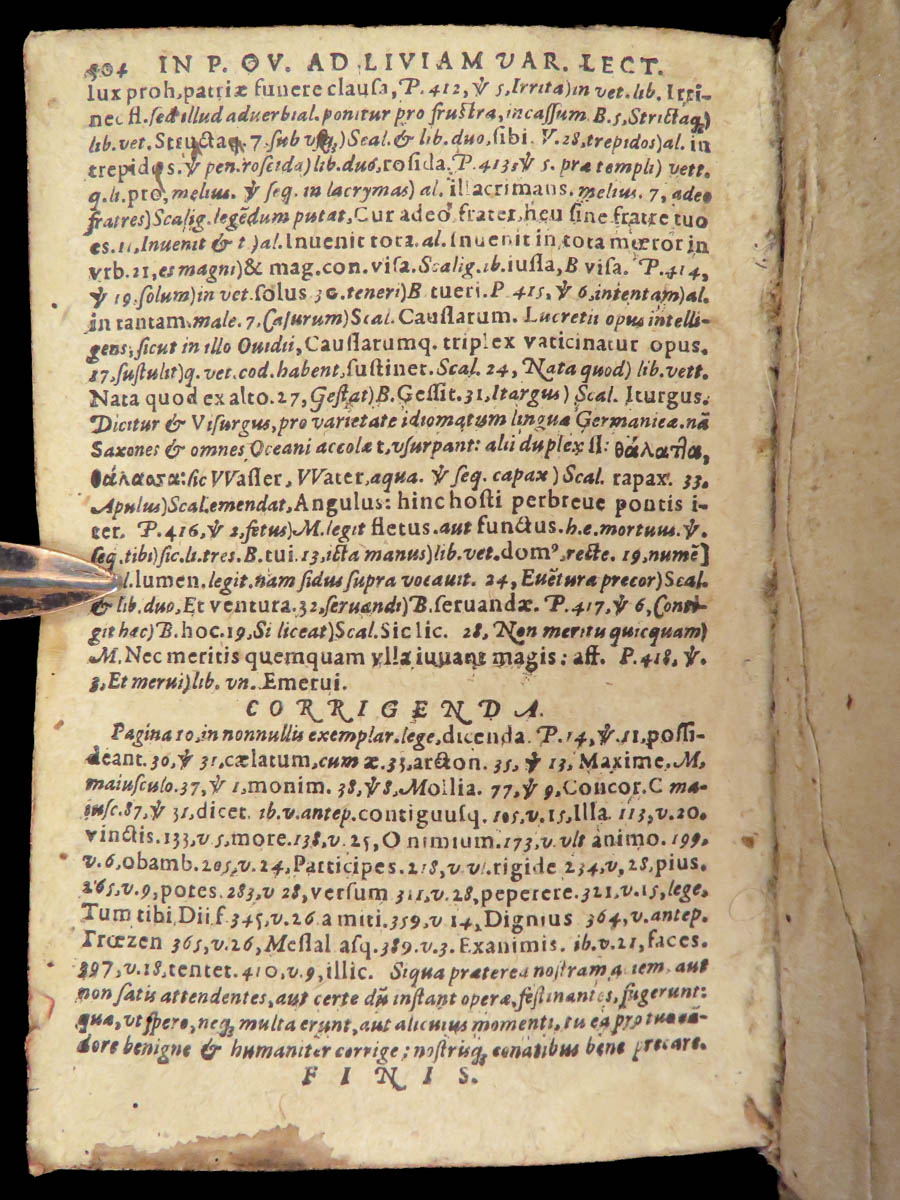 504 IN P. OV. AD LIVIAM VAR. LECT.
lux proh, patriæ funere clausa, P. 412, ℣ 5, Irrita) in vet. lib. Irri-
nec fl. sed illud adverbial. ponitur pro frustra, incassum. B. 5, Strictaq;)
lib. vet. Structaq. 7. sub) Scal. & lib. duo, sibi. V. 28, trepidos) al. in
trepidos. ℣ pen. roscida) lib. duo, rosida. P. 413, ℣ 5. præ templi) vett.
q. li. pro, melius. ℣ seq. in lacrymas) al. illacrimans. melius. 7, adeo
fratres) Scalig. legēdum putat, Cur adeo, frater, heu sine fratre tuo
es. 11, Inuenit & t) al. Inuenit tota. al. Inuenit in tota mœror in
vrb. 21, es magni) & mag. con. visa. Scalig. ib. iussa, B visa. P. 414,
℣ 19. solum) in vet. solus 30. teneri) B tueri. P. 415, ℣ 6, intentam) al.
in tantam. male. 7, Casurum) Scal. Caussarum. Lucretii opus intelli-
gens, sicut in illo Ouidii, Caussarumq. triplex vaticinatur opus.
17, sustulit) q. vet. cod. habent, sustinet. Scal. 24, Nata quod) lib. vett.
Nata quod ex alto. 27, Gestat) B. Gessit. 31, Itargus) Scal. Iturgus.
Dicitur & Visurgus, pro varietate idiomatum linguæ Germanicæ. nā
Saxones & omnes Oceani accolæ t, vsurpant: alii duplex ſſ: θάλαττα,
θάλασσα: sic VVasser, VVater, aqua. ℣ seq. capax) Scal. rapax. 33.
Apulus) Scal. emendat, Angulus: hinc hosti perbreue pontis i-
ter. P. 416, ℣ 2, fetus) M. legit fletus. aut functus. h. e. mortuus. ℣.
seq. tibi) sic. li. tres. B. tui. 13, icta manus) lib. vet. domꝰ, recte. 19, numē]
l. lumen. legit. nam sidus supra vocauit. 24, Euētura precor) Scal.
& lib. duo, Et ventura. 32, seruandi) B. seruandæ. P. 417, ℣ 6, Conti-
git hæc) B. hoc. 19, Si liceat) Scal. Sic lic. 28, Non meritu quicquam)
M. Nec meritis quemquam vlla iuuant magis: aff. P. 418, ℣.
3, Et merui) lib. vn. Emerui.
CORRIGENDA.
Pagina 10, in nonnullis exemplar. lege, dicenda. P. 14, ℣ 11, possi-
deant. 30, ℣ 31, cælatum, cum æ. 35, arcton. 35, ℣ 13, Maxime, M,
maiusculo. 37, ℣ 1, monim. 38, ℣ 8, Mollia. 77, ℣ 9, Concor. C ma-
iusc. 87, ℣ 31, dicet. ib. v. antep. contiguusq. 105, v. 15, Illa. 113, v. 20.
vinctis. 133, v 5, more. 138, v. 25, O nimium. 173, v. vlt animo. 199,
v. 6, obamb. 205, v. 24, Participes. 218, v. vl. rigide 234, v, 28, pius.
265, v. 9, potes. 283, v 28, versum 311, v. 28, peperere. 321, v. 15, lege,
Tum tibi, Dii f. 345, v. 26. amiti. 359, v 14, Dignius 364, v. antep.
Trœzen 365, v. 26, Messal asq. 389. v. 3. Exanimis. ib. v. 21, faces.
397, v. 18, tentet. 410, v. 9, illic. Siqua præterea nostram aciem, aut
non satis attendentes, aut certe dū instant operæ, festinantes, fugerunt:
quæ, vt spero, neq; multa erunt, aut alicuius momenti, tu ea pro tuo cā-
dore benigne & humaniter corrige; nostrisq; conatibus bene precare.
FINIS.